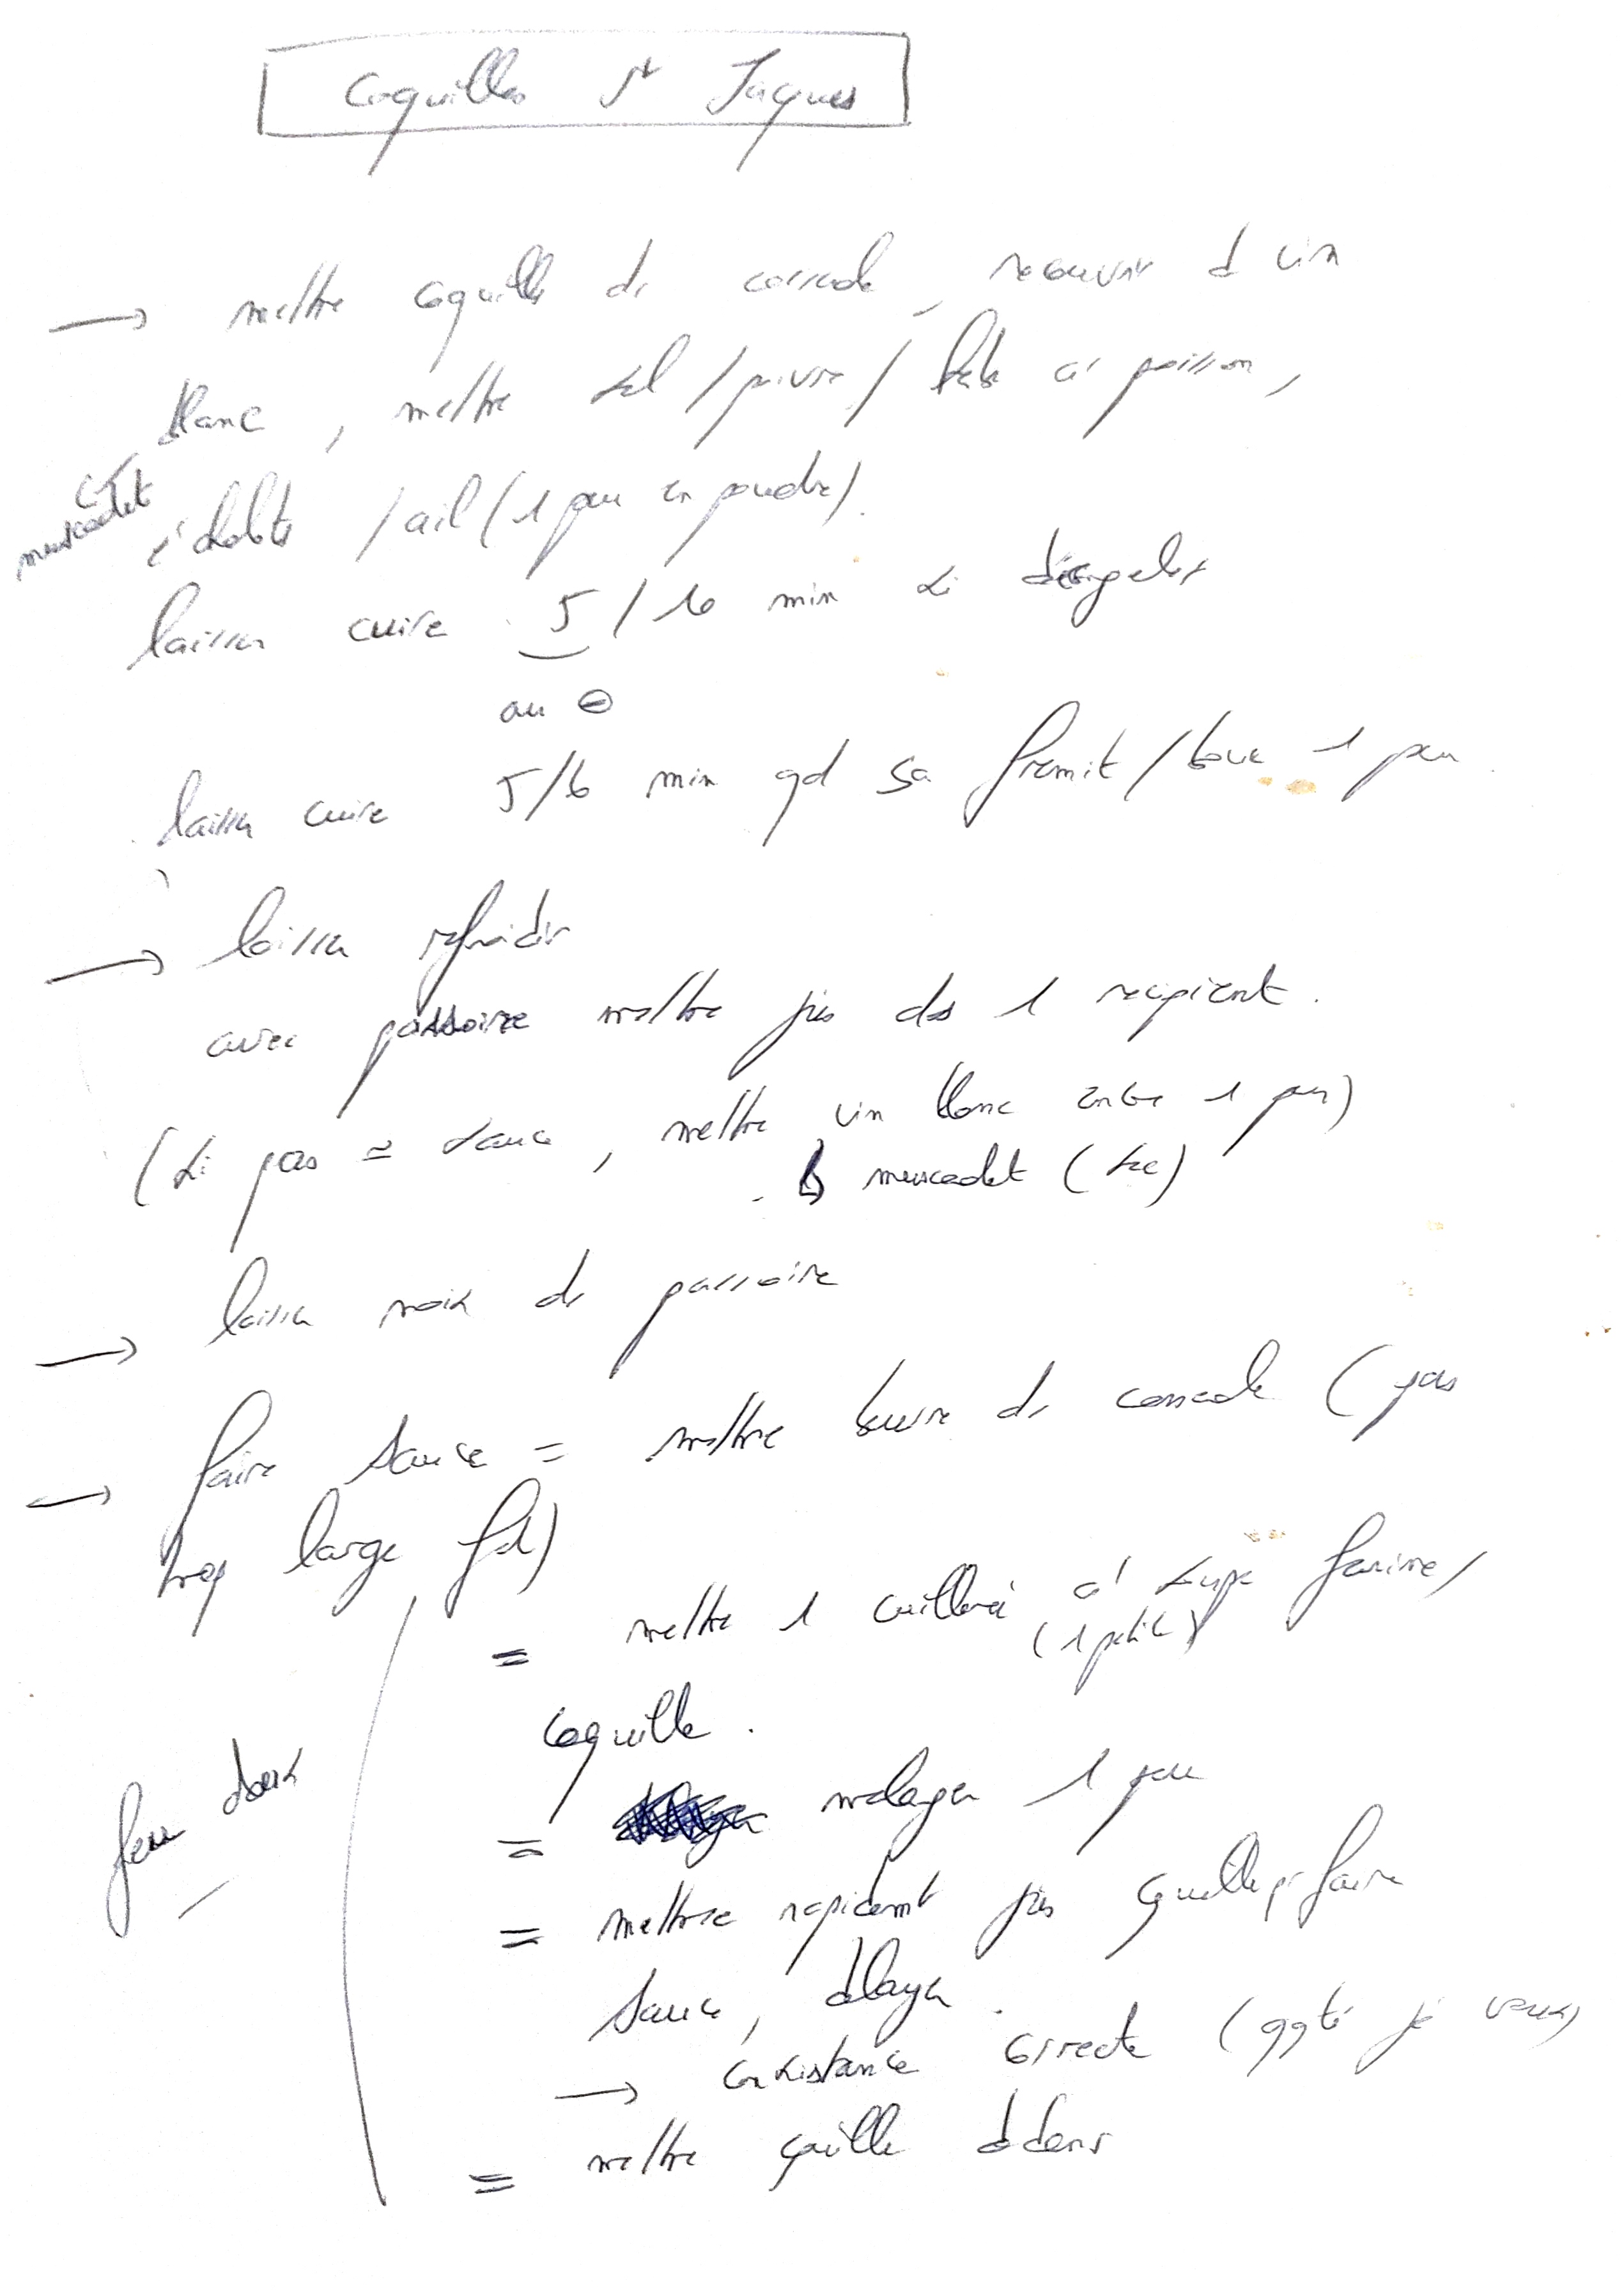 Coquilles St Jaques
→ mettre coquille ds casserole, recouvrir d vin
blanc, mettre sel / poivre / herbe à poisson,
muscadet
échalote / ail (1 peu en poudre).
laisser cuire 5 / 10 min si décongelés
au
laisser cuire 5/6 min qd sa fremit / bout 1 peu
→ laisser refroidir
avec passoire mettre jus ds 1 recipient.
(si pas = sauce, mettre vin blanc entre 1 peu)
muscadet (sec)
→ laisser noix ds passoire
→ faire sauce = mettre beurre ds casserole (pas
trop large fd)
= mettre 1 cuilleré à supe farine /
(1 petite)
coquille.
= melanger 1 peu
feu doux
= mettre rapidemt jus coquille pr faire
sauce, délayer.
→ consistance correcte (qqté je veux)
= mettre cquille ddans